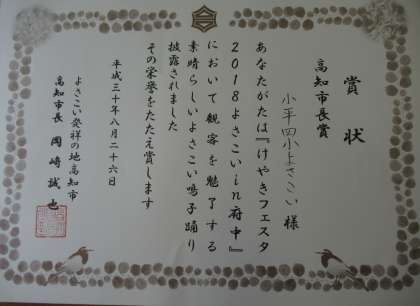 賞状
高知市長賞
小平四小よさこい 様
あなたがたは『けやきフェスタ
2018よさこいin府中』
において観客を魅了する
素晴らしいよさこい鳴子踊り
披露されました
その栄誉をたたえ賞します
平成三十年八月二十六日
よさこい発祥の地高知市
高知市長 岡﨑誠也